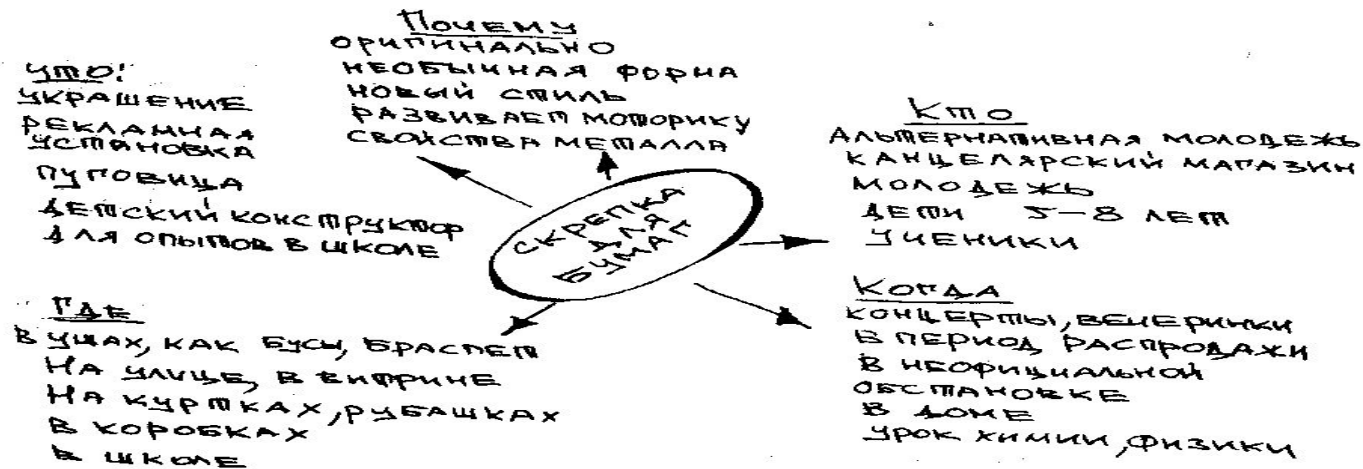 ПОЧЕМУ
ОРИГИНАЛЬНО
НЕОБЫЧНАЯ ФОРМА
НОВЫЙ СТИЛЬ
РАЗВИВАЕТ МОТОРИКУ
СВОЙСТВА МЕТАЛЛА
ЧТО!
УКРАШЕНИЕ
РЕКЛАМНАЯ
УСТАНОВКА
ПУГОВИЦА
ДЕТСКИЙ КОНСТРУКТОР
ДЛЯ ОПЫТОВ В ШКОЛЕ
КТО
АЛЬТЕРНАТИВНАЯ МОЛОДЕЖЬ
КАНЦЕЛЯРСКИЙ МАГАЗИН
МОЛОДЕЖЬ
ДЕТИ 5-8 ЛЕТ
УЧЕНИКИ
СКРЕПКА
ДЛЯ
БУМАГ
ГДЕ
В УШАХ, КАК БУСЫ, БРАСЛЕТ
НА УЛИЦЕ, В ВИТРИНЕ
НА КУРТКАХ, РУБАШКАХ
В КОРОБКАХ
В ШКОЛЕ
КОГДА
КОНЦЕРТЫ, ВЕЧЕРИНКИ
В ПЕРИОД РАСПРОДАЖИ
В НЕОФИЦИАЛЬНОЙ
ОБСТАНОВКЕ
В ДОМЕ
УРОК ХИМИИ, ФИЗИКИ